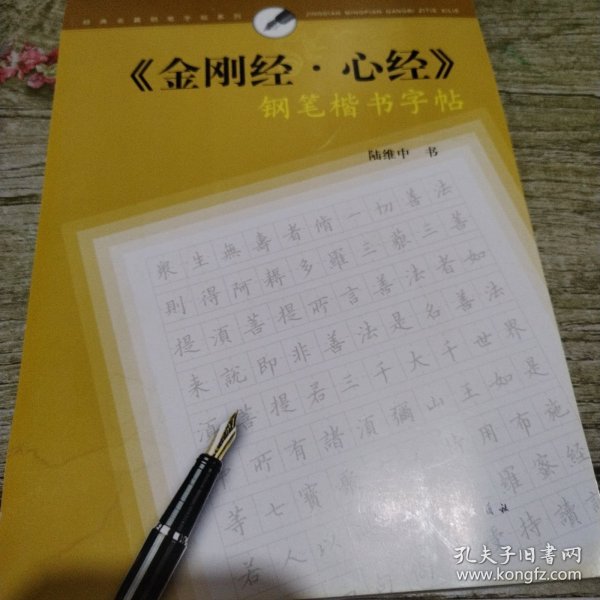 经典名篇钢笔字帖系列
JINGDIAN MINGPIAN GANGBI ZITIE XILIE
《金刚经·心经》
钢笔楷书字帖
陆维中 书
眾生無壽者脩一切善法
則得阿耨多羅三藐三菩
提須菩提所言善法者如
來說即非善法是名善法
須菩提若三千大千世界
所有諸須彌山王如是
等七寶聚 用布施
若人以 羅蜜經
持讀誦
孔夫子旧书网
www.kongfz.com